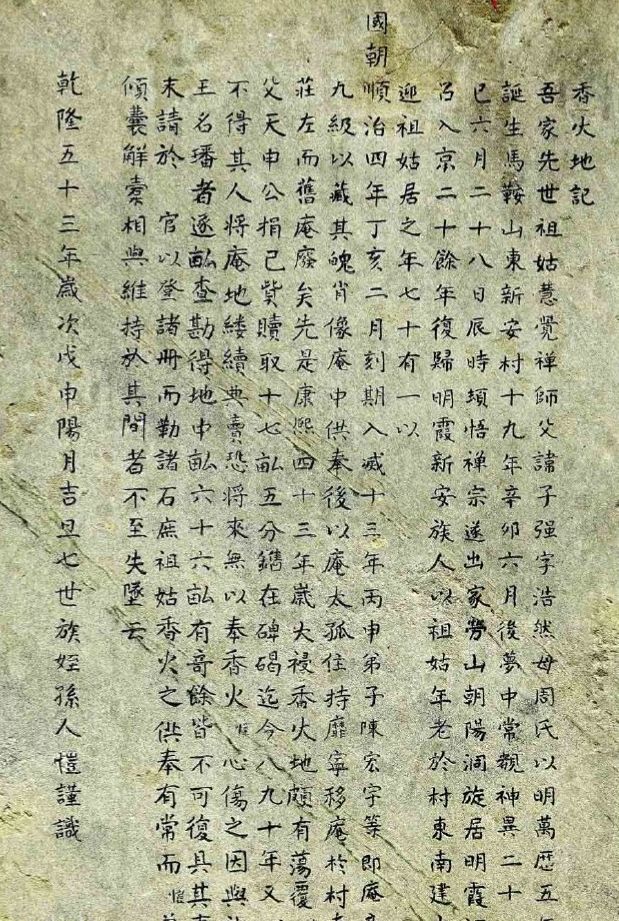 香火地記
吾家先世祖姑慧覺禪師父諱子强字浩然母周氏以明萬歷五
誕生馬鞍山東新安村十九年辛卯六月後夢中常覩神異二十
巳六月二十八日辰時頓悟禪宗遂出家勞山朝陽洞旋居明霞
召入京二十餘年復歸明霞新安族人以祖姑年老於村東南建
迎祖姑居之年七十有一以
國朝順治四年丁亥二月刻期入滅十三年丙申弟子陳宏字等即庵
九級以藏其魄肖像庵中供奉後以庵太孤住持靡寧移庵於村
莊左而舊庵廢矣先是康熙四十三年歲大祲香火地頗有蕩覆
父天申公捐己貲贖取十七畝五分鐫在碑碣迄今八九十年又
不得其人將庵地縷續典賣恐將來無以奉香火愷心傷之因與
王名璠者逐畝查勘得地中畝六十六畝有奇餘皆不可復具其
末請於 官以登諸冊而勒諸石庶祖姑香火之供奉有常而愷
傾囊解橐相與維持於其間者不至失墜云
乾隆五十三年歲次戊申陽月吉旦七世族姪孫人愷謹識